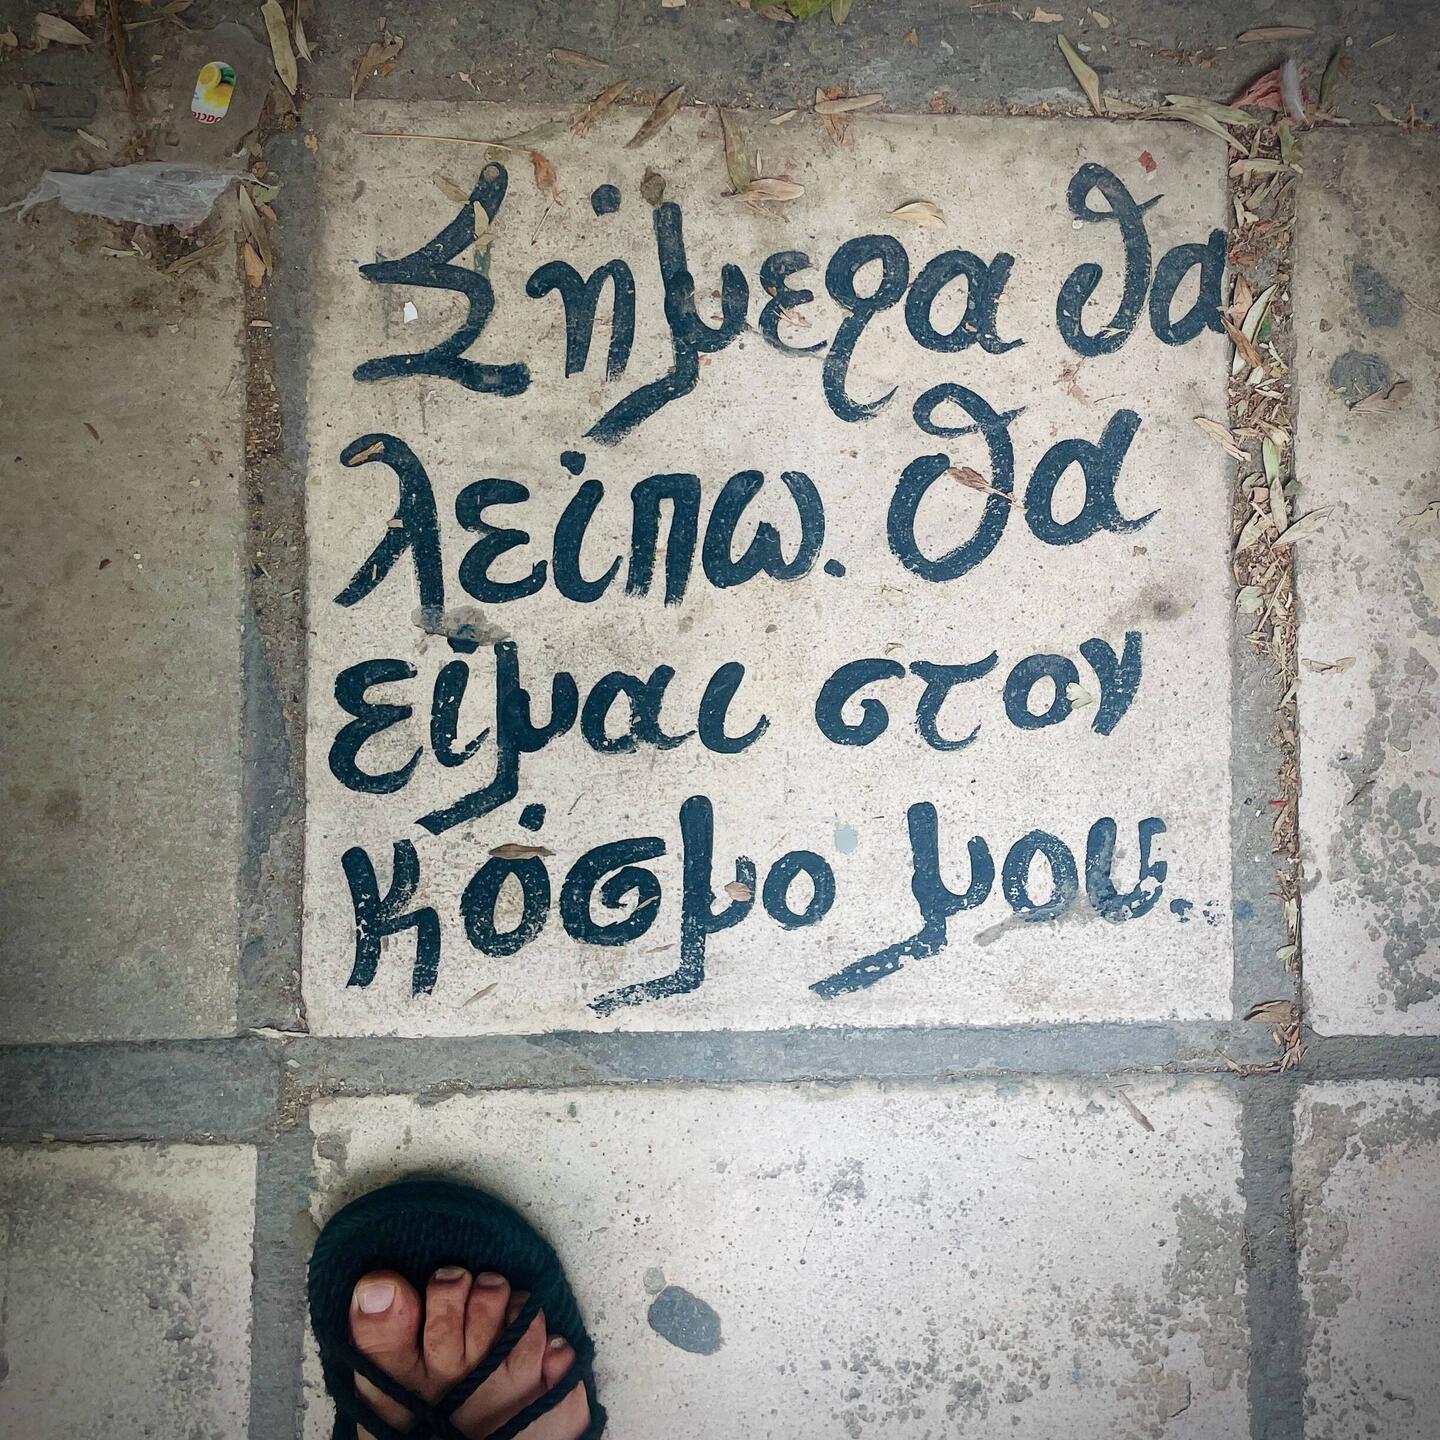 Σήμερα θα
λείπω. θα
είμαι στον
κόσμο μου.